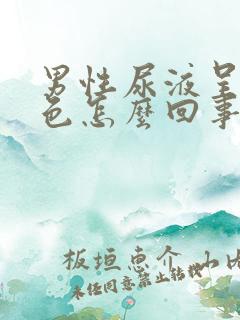 男性尿液呈
色怎麼回事
板垣惠介
未任同意禁止转载